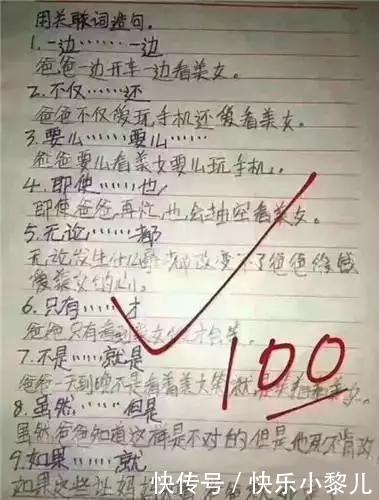 用关联词造句.
1.一边……一边
爸爸一边开车一边看美女。
2.不仅……还
爸爸不仅爱玩手机还爱看美女。
3.要么……要么……
爸爸要么看美女要么玩手机。
4.即使……也
即使爸爸再忙,也会抽空看美女。
5.无论……都
无论发生什么 都改变不了爸爸
爱美女的心。
6.只有……才
爸爸只有看到美女 才会笑。
7.不是……就是
爸爸一天到晚不是看着美女笑就是
8.虽然……但是
虽然爸爸知道这样是不对的但是他
9.如果……就
如果 妈
100
快传号/快乐小黎儿